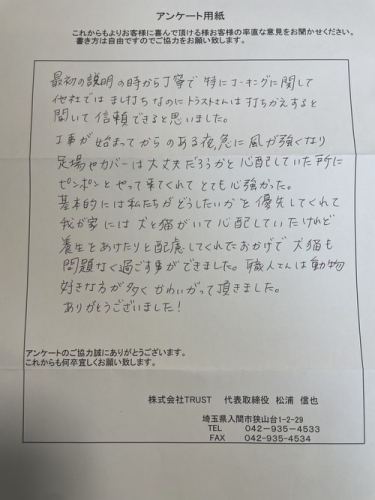 アンケート用紙
これからもよりお客様に喜んで頂ける様お客様の率直な意見をお聞かせください。
書き方は自由ですのでご協力をお願い致します。
最初の説明の時から丁寧で 特にコーキングに関して
他社では まし打ちなのにトラストさんは打ちかえすると
聞いて信頼できると思いました。
工事が始まってからのある夜、急に風が強くなり
足場やカバーは大丈夫だろうかと心配していた所に
ピンポンとやって来てくれてとても心強かった。
基本的には私たちがどうしたいかを優先してくれて
我が家には犬と猫がいて心配していたけれど
養生をあけたりと配慮してくれておかげで犬猫も
問題なく過ごす事ができました。職人さんは動物
好きな方が多く かわいがって頂きました。
ありがとうございました!
アンケートのご協力誠にありがとうございます。
これからも何卒宜しくお願い致します。
株式会社TRUST 代表取締役 松浦 信也
埼玉県入間市狭山台1-2-29
TEL 042-935-4533
FAX 042-935-4534